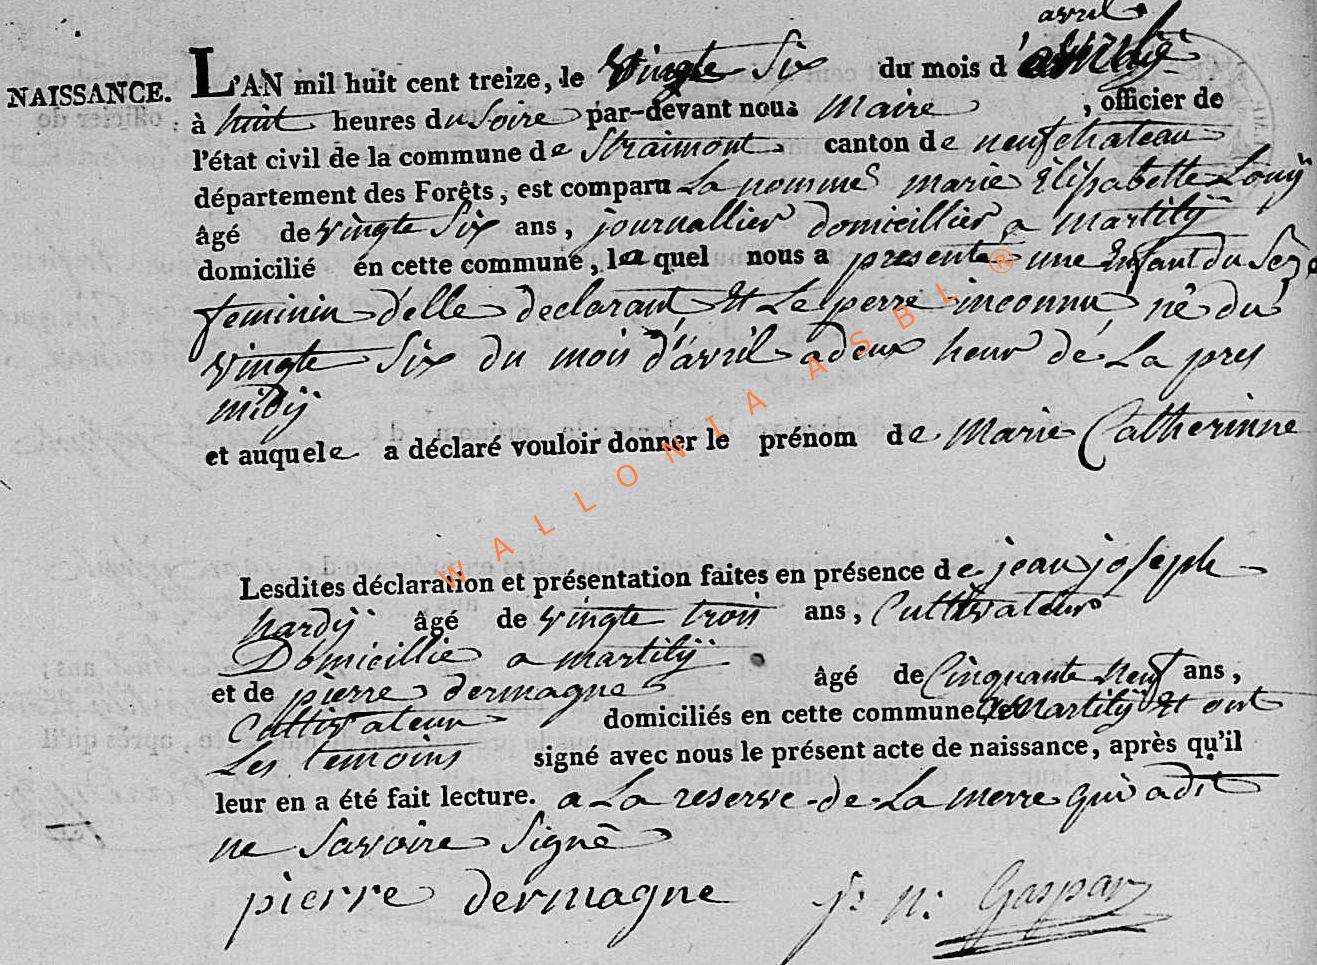 avril
NAISSANCE. L'AN mil huit cent treize, le vingte Six du mois d'
à huit heures du Soire par-devant nous maire , officier de
l'état civil de la commune de Straimont canton de neufchateau
département des Forêts, est comparu La nommé marie Elisabette Louij
âgé de vingte Six ans, journallier domicillier a martilij
domicilié en cette commune, la quel nous a presente une Enfant du Sexe
feminin d'elle declarant Et Le perre inconnu, né du
vingte Six du mois d'avril a deux heur de La pres
midij
et auquele a déclaré vouloir donner le prénom de Marie Catherinne
Lesdites déclaration et présentation faites en présence de jean joseph
hardij âgé de vingte trois ans, Cultivateur
Domicillie a martilij
et de pierre dermagne âgé de Cinquante neuf ans,
Cultivateur domiciliés en cette commune de Martilij Et ont
Les temoins signé avec nous le présent acte de naissance, après qu'il
leur en a été fait lecture. a La reserve de La merre qui a dit
ne Savoire Signé
pierre dermagne J: n: Gaspar
WALLONIA ASBL ®